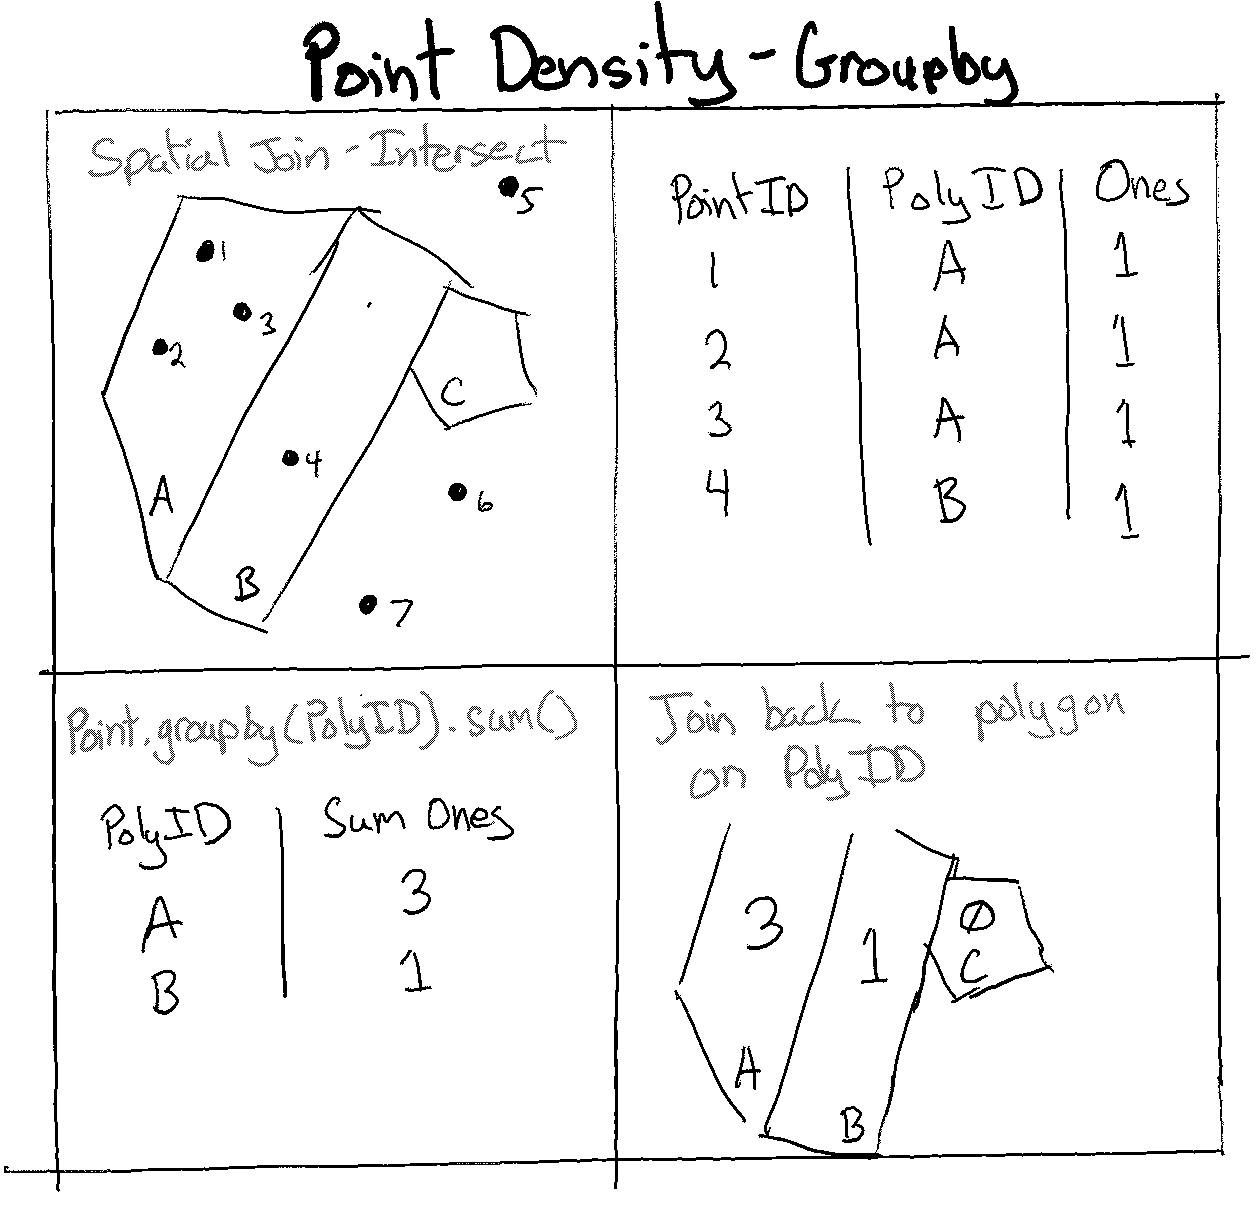 Point Density - Groupby
Spatial Join - Intersect
5
1
3
2
C
4
A
6
B
7
PointID | PolyID | Ones
1 A 1
2 A 1
3 A 1
4 B 1
Point.groupby(PolyID).sum()
PolyID | Sum Ones
A 3
B 1
Join back to polygon
on PolyID
3
1
Ø
C
A
B